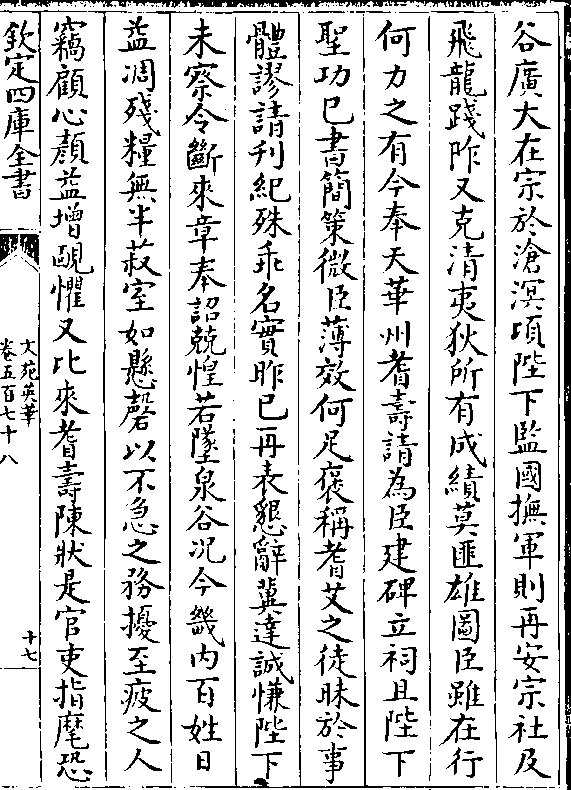 谷廣大在宗於滄溟項陛下監國撫軍則再安宗社及
飛龍踐阼又克清夷狄所有成績莫匪雄圖臣雖在行
何力之有今奉天華州耆壽請為臣建碑立祠且陛下
聖功已書簡策微臣薄效何足褒稱耆艾之徒昧於事
體謬請刋紀殊乖名實昨已再表懇辭冀達誠慊陛下
未察令斷來章奉詔兢惶若墜泉谷况今畿内百姓日
益凋殘糧無半菽室如懸磬以不急之務擾至疲之人
竊顧心顔益增靦懼又比來耆壽陳狀是官吏指麾恐
欽定四庫全書
文苑英華
卷五百七十八
十七